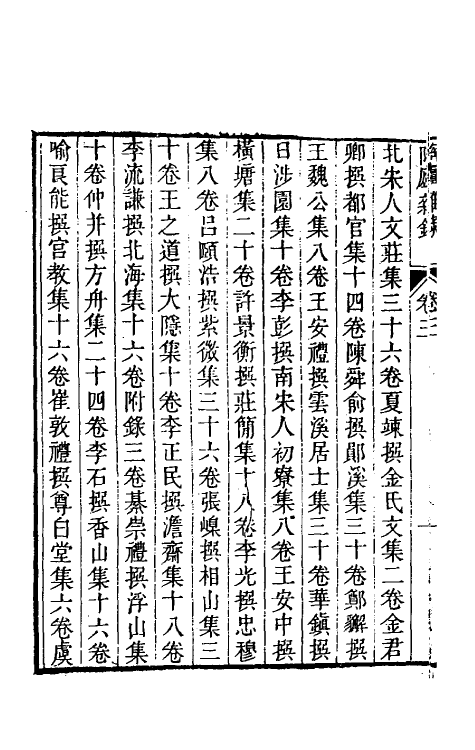 卷三
北宋人文莊集三十六卷夏竦撰金氏文集二卷金君
卿撰都官集十四卷陳舜俞撰鄖溪集三十卷鄭獬撰
王魏公集八卷王安禮撰雲溪居士集三十卷華鎮撰
日涉園集十卷李彭撰南宋人初寮集八卷王安中撰
橫塘集二十卷許景衡撰莊簡集十八卷李光撰忠穆
集八卷呂頤浩撰紫微集三十六卷張嵲撰相山集三
十卷王之道撰大隱集十卷李正民撰澹齋集十八卷
李流謙撰北海集十六卷附錄三卷綦崇禮撰浮山集
十卷仲并撰方舟集二十四卷李石撰香山集十六卷
喻良能撰官教集十六卷崔敦禮撰尊白堂集六卷虞